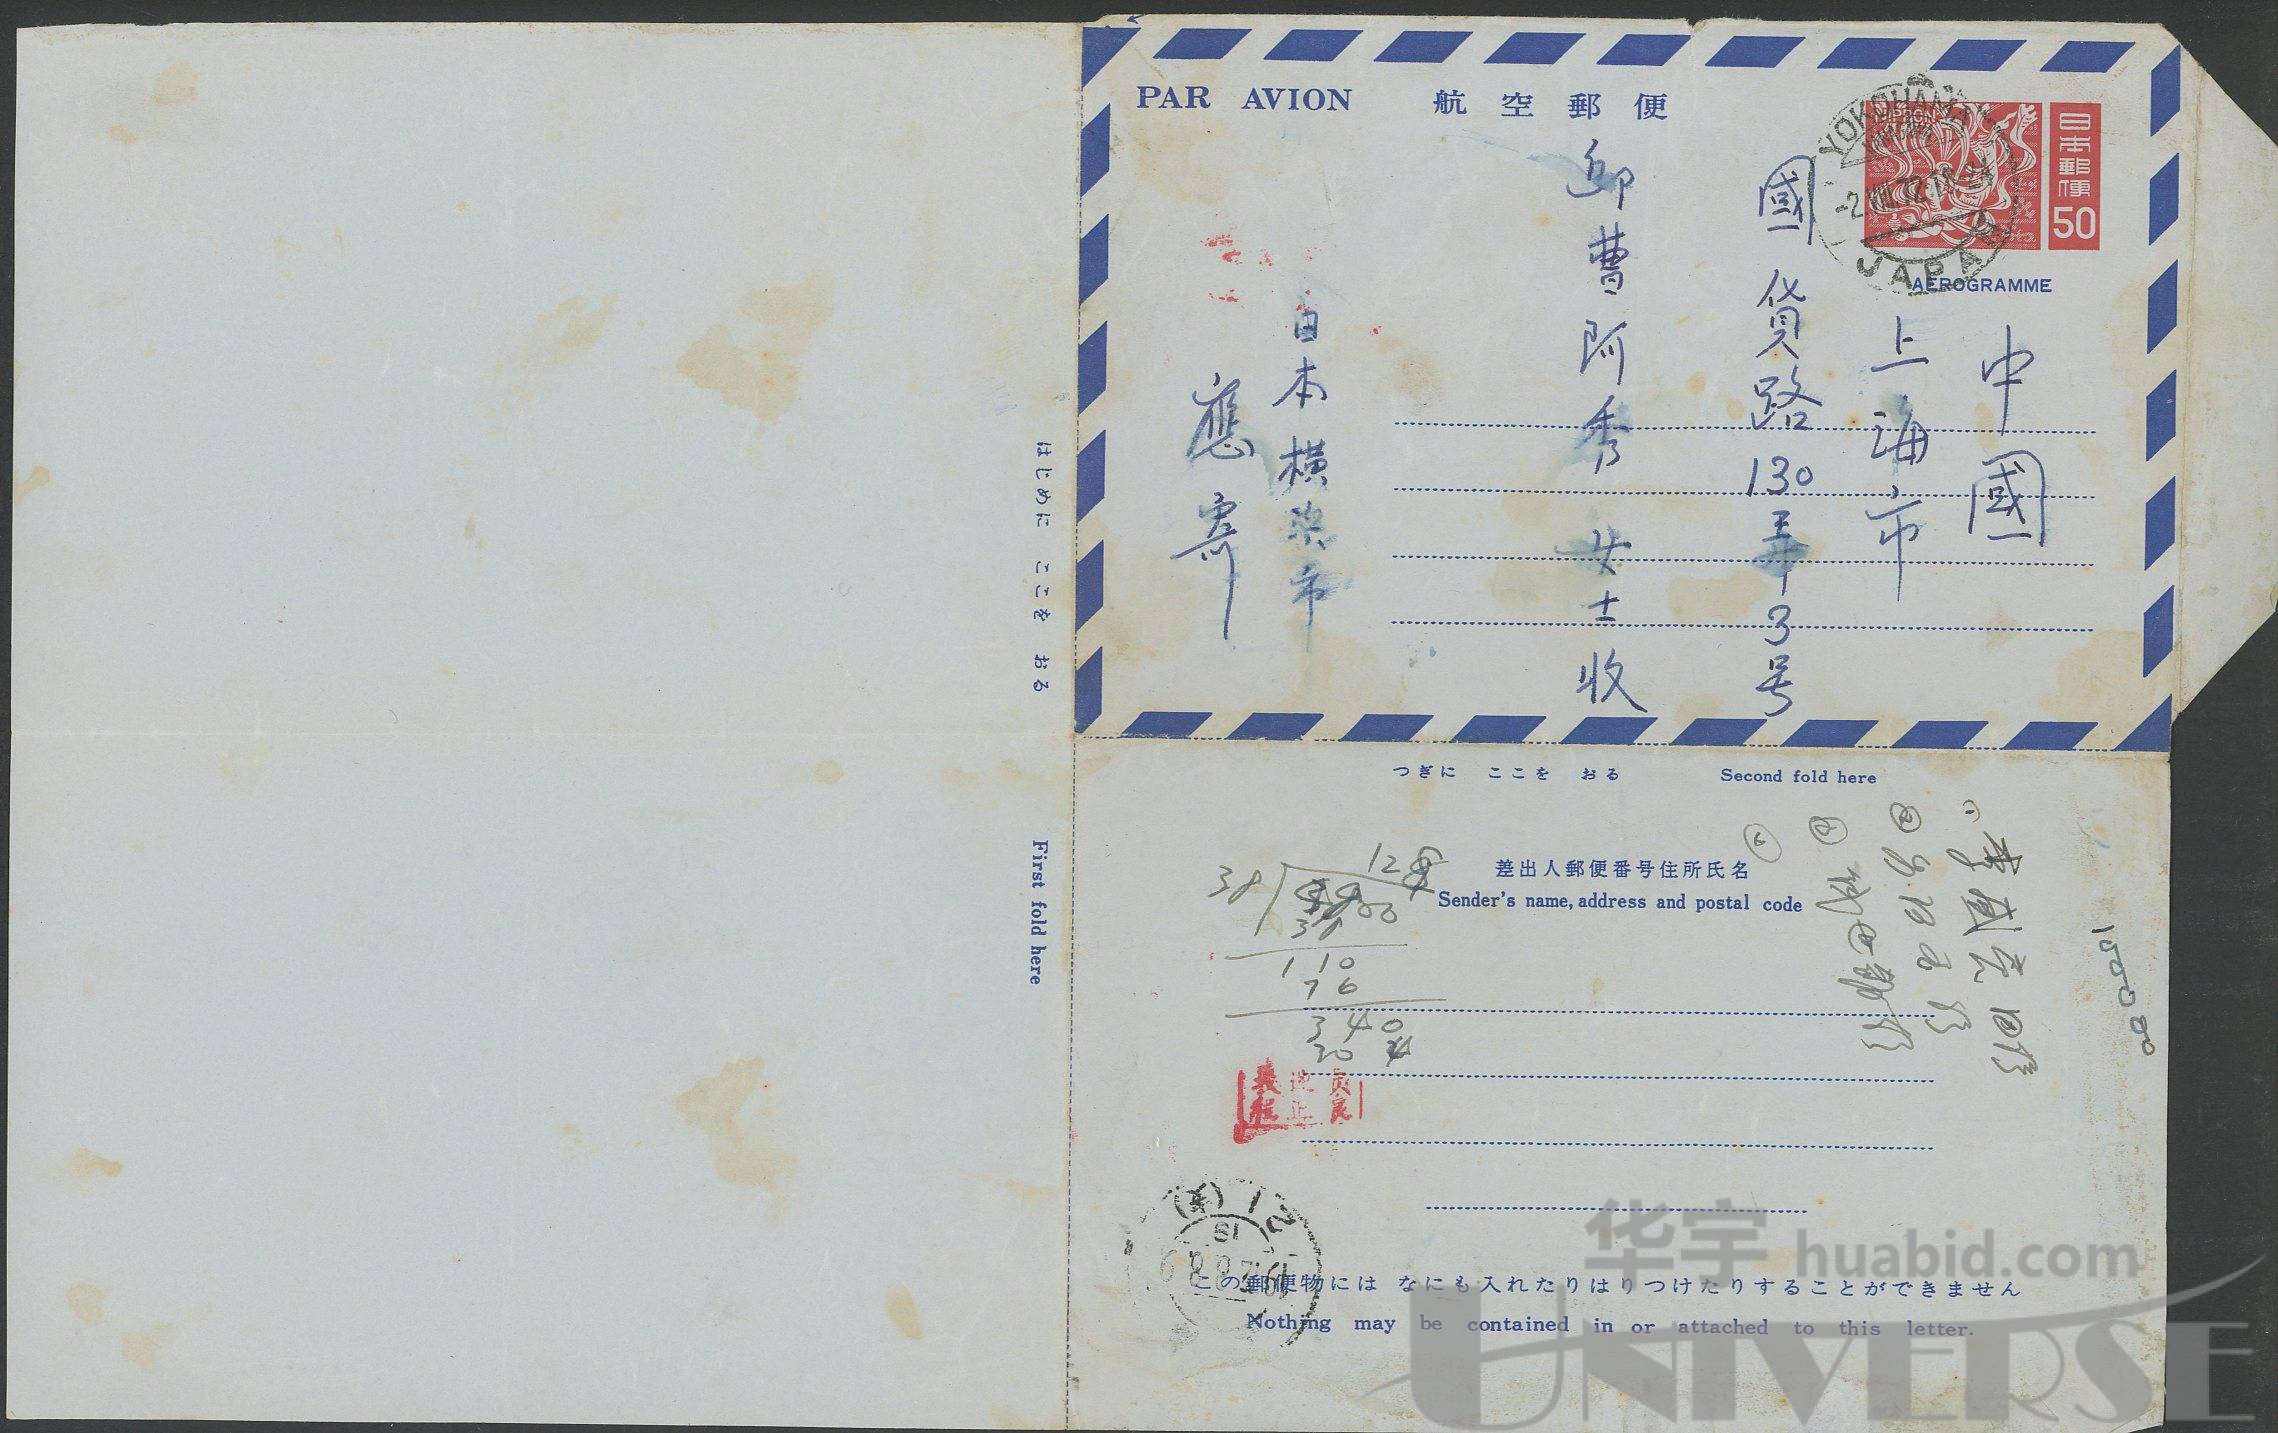 PAR AVION 航空郵便
YOKOHAMA
-2.VIII.72
JAPAN
NIPPON
日本郵便
50
AEROGRAMME
中國
上海市
國貨路130弄3号
邬曹阿秀 女士 收
日本横浜市
應寄
はじめに ここを おる
First fold here
つぎに ここを おる Second fold here
差出人郵便番号住所氏名
Sender's name, address and postal code
38
128
110
76
340
義
程 正
12
この郵便物には なにも入れたりはりつけたりすることができません
Nothing may be contained in or attached to this letter.
华宇 huabid.com
UNIVERSE